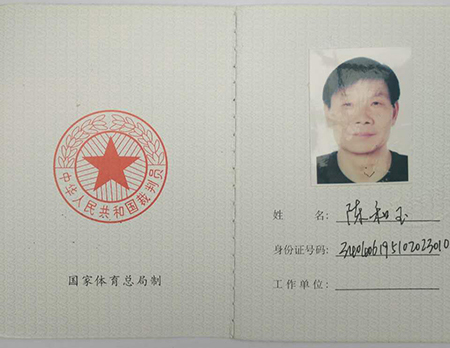 中华人民共和国裁判员
国家体育总局制
姓 名：陈和玉
身份证号码：
工作单位：